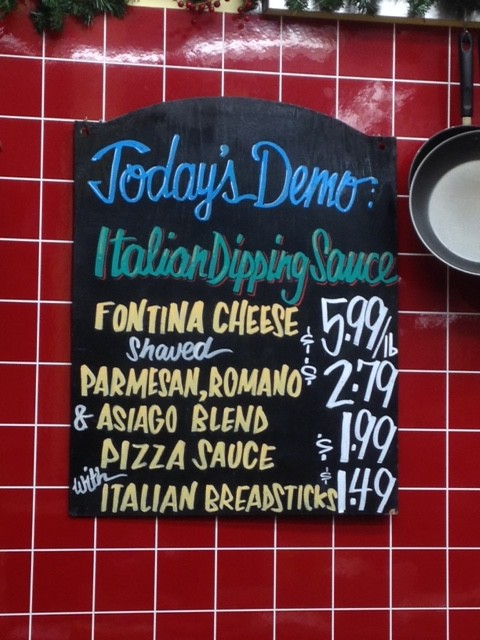 Today's Demo:
Italian Dipping Sauce
FONTINA CHEESE $5.99/lb
Shaved
PARMESAN, ROMANO $2.79
& ASIAGO BLEND
PIZZA SAUCE $1.99
with ITALIAN BREADSTICKS $1.49